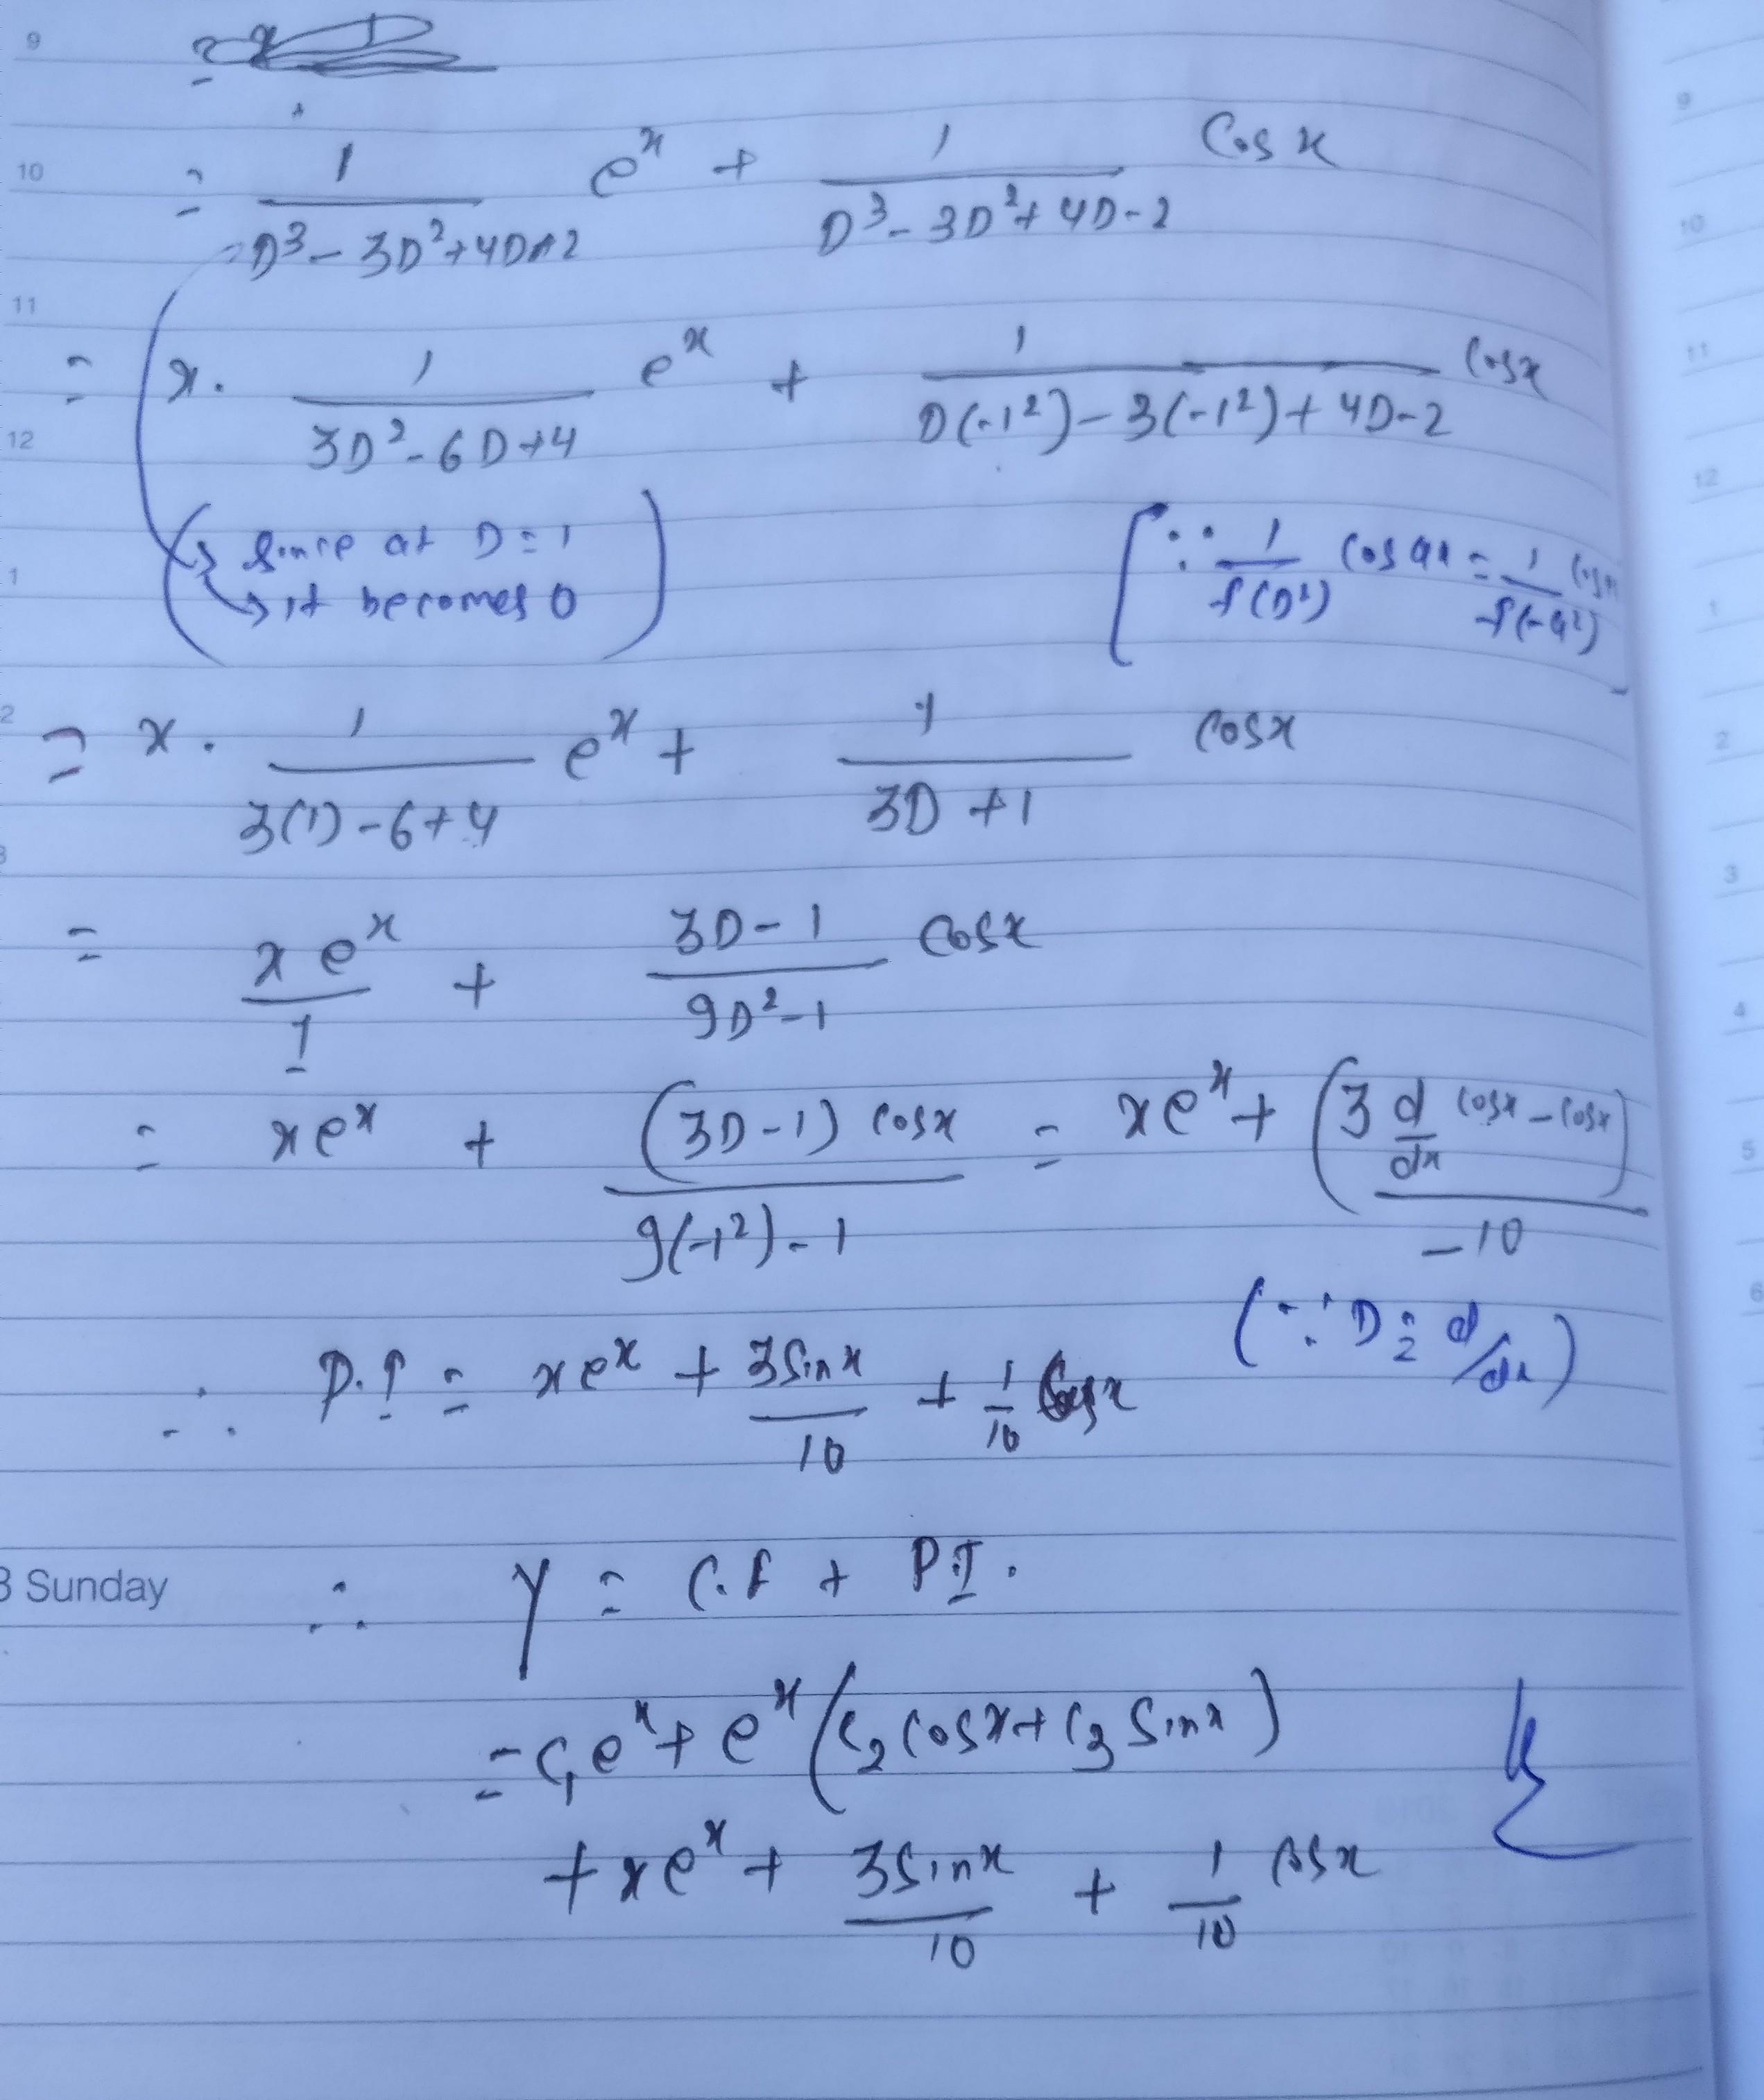 9
10
= 1/(D³ - 3D² + 4D - 2) eˣ + 1/(D³ - 3D² + 4D - 2) Cos x
11
= x. 1/(3D² - 6D + 4) eˣ + 1/(D(-1²) - 3(-1²) + 4D - 2) Cosx
12
( since at D = 1 [∵ 1/f(D²) Cos ax = 1/f(-a²) Cos
1 → it becomes 0 )
2
= x. 1/(3(1) - 6 + 4) eˣ + 1/(3D + 1) Cosx
3
= x eˣ/1 + (3D - 1)/(9D² - 1) Cosx
= xeˣ + (3D - 1) Cosx/(9(-1²) - 1) = xeˣ + (3 d/dx Cosx - Cosx)/-10
(∵ D = d/dx)
∴ P.I = xeˣ + 3Sinx/10 + 1/10 Cosx
3 Sunday
∴ Y = C.F + P.I.
= C₁eˣ + eˣ(C₂ Cosx + C₃ Sinx)
+ xeˣ + 3Sinx/10 + 1/10 Cosx
9
10
11
12
1
2
3
4
5
6